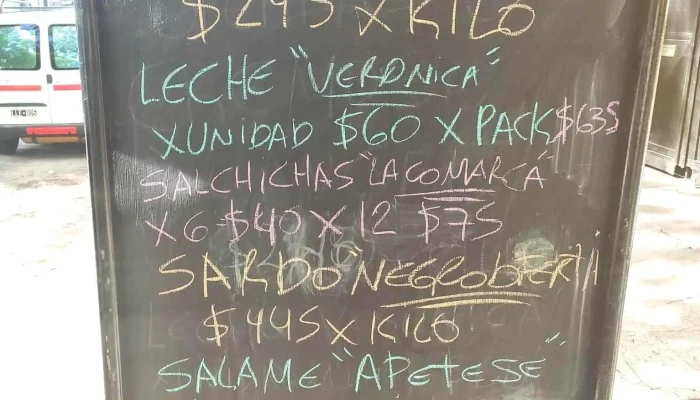 $245 X KILO
LECHE "VERONICA"
XUNIDAD $60 X PACK $635
SALCHICHAS "LA COMARCA"
X 6 $40 X 12 $75
SARDO "NEGRO" OFERTA
$445 X KILO
SALAME "APETESE"